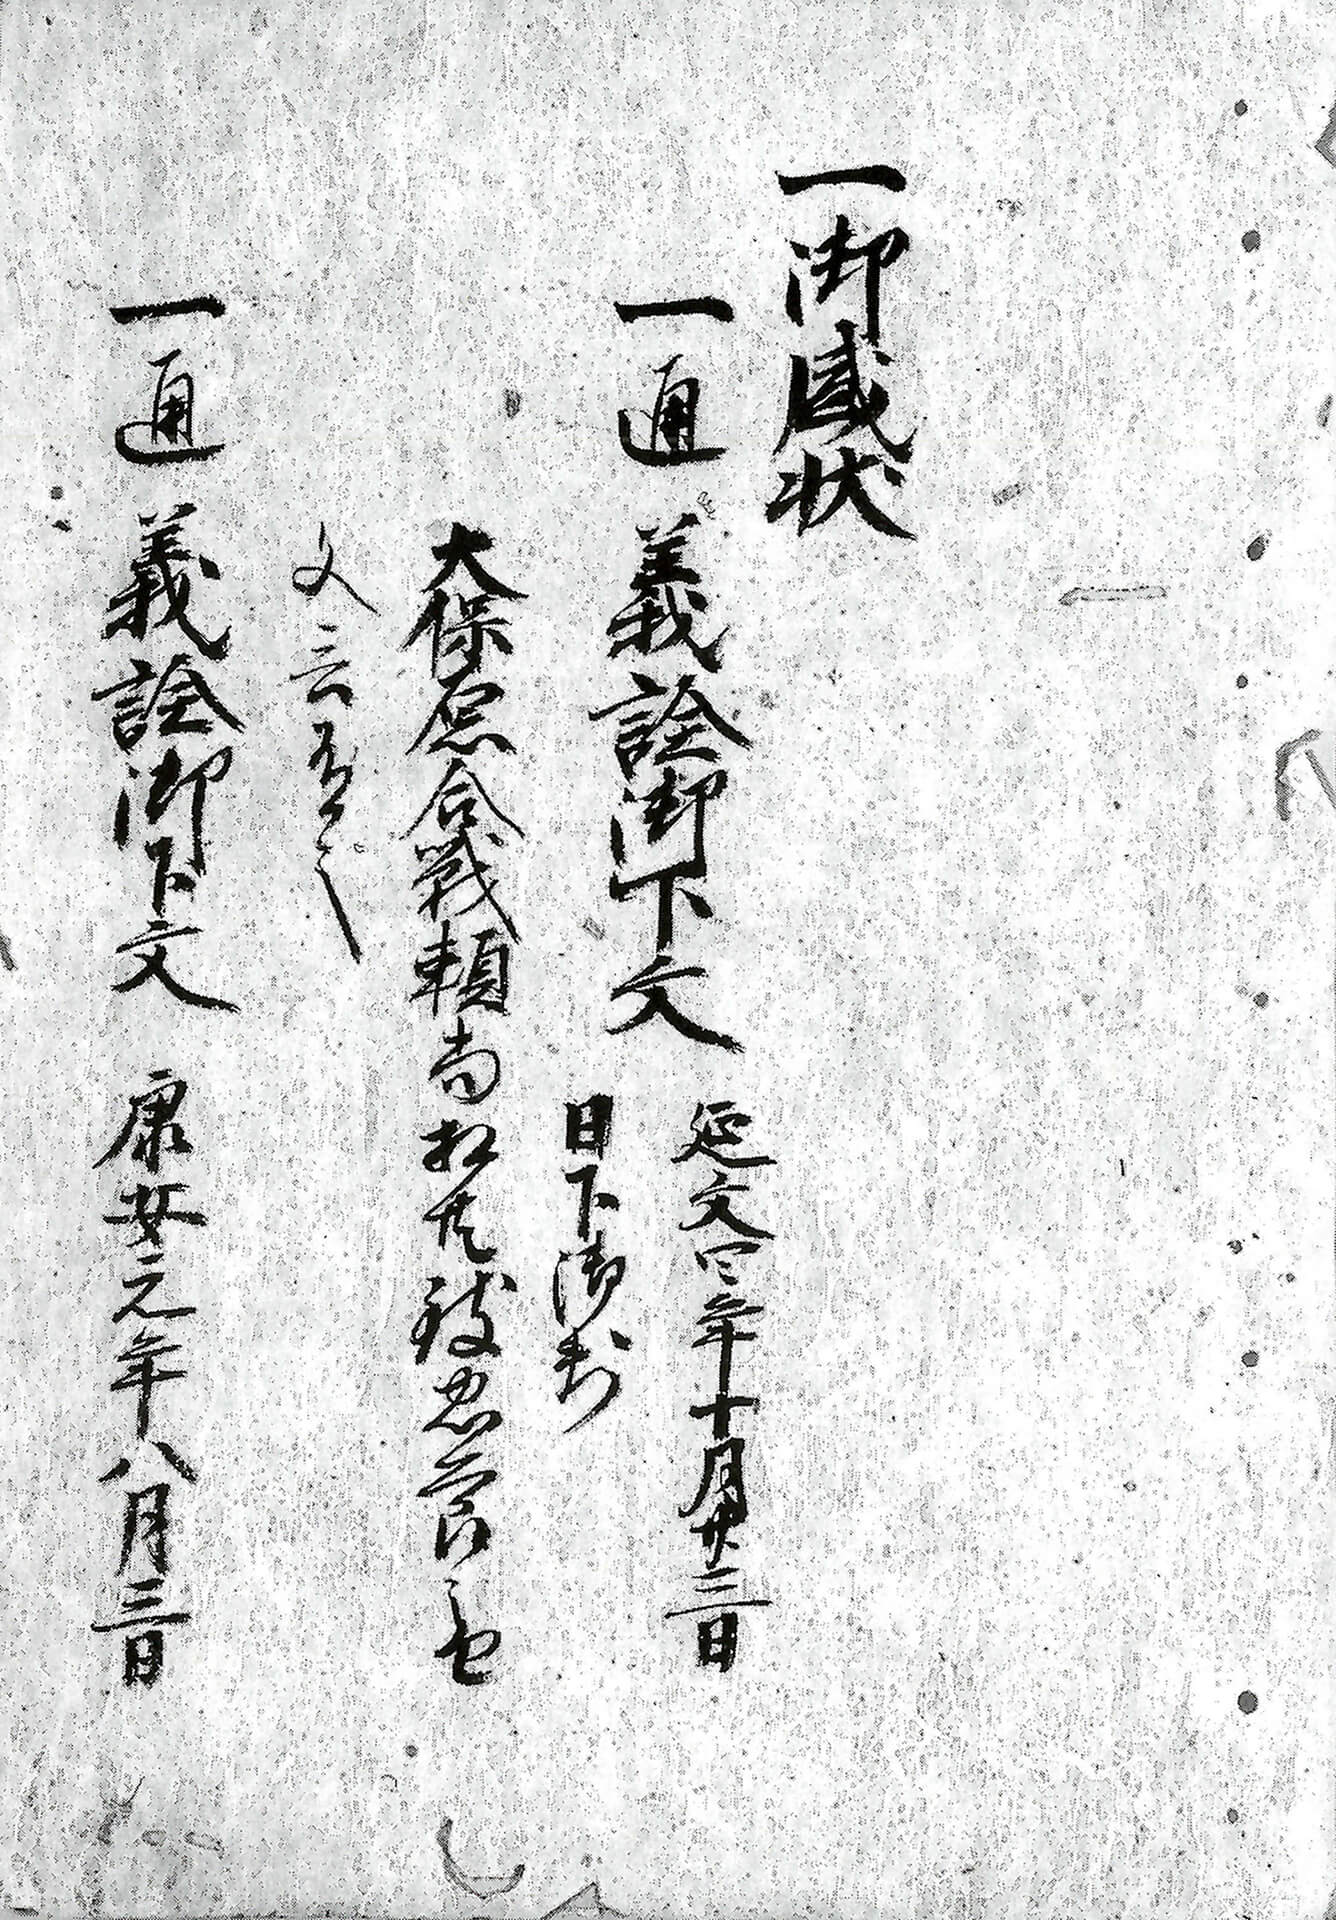 一御感状
一通義詮御下文 延文四年十月廿三日
日下御判
大保原合戦頼尚松犬致忠節之由
文言有之
一通義詮御下文 康安元年八月三日